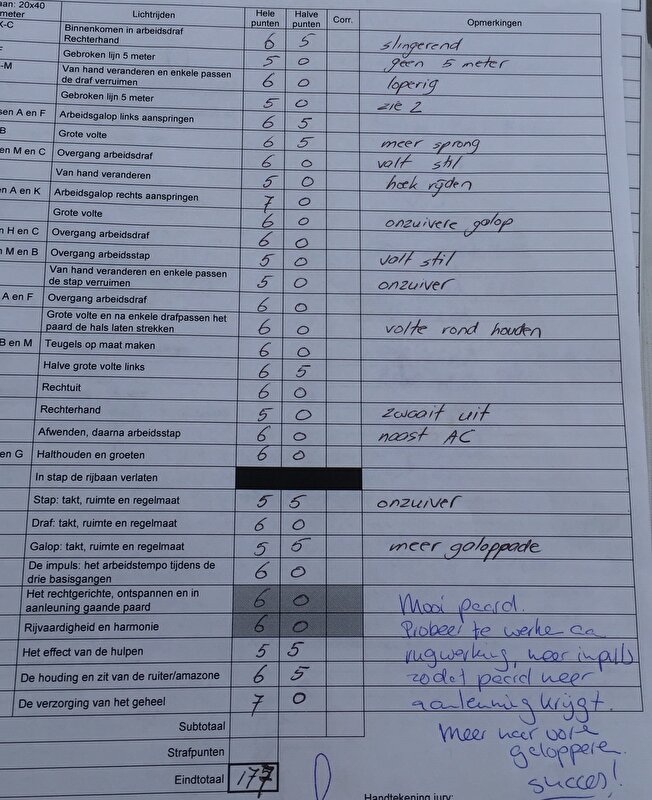 aan: 20x40
meter Lichtrijden Hele punten Halve punten Corr. Opmerkingen
K-C Binnenkomen in arbeidsdraf
Rechterhand 6 5 slingerend
Gebroken lijn 5 meter 5 0 geen 5 meter
-M Van hand veranderen en enkele passen
de draf verruimen 6 0 loperig
Gebroken lijn 5 meter 5 0 zie 2
sen A en F Arbeidsgalop links aanspringen 6 5
B Grote volte 6 5 meer sprong
en M en C Overgang arbeidsdraf 6 0 valt stil
Van hand veranderen 5 0 hoek rijden
en A en K Arbeidsgalop rechts aanspringen 7 0
Grote volte 6 0 onzuivere galop
n H en C Overgang arbeidsdraf 6 0
n M en B Overgang arbeidsstap 5 0 valt stil
Van hand veranderen en enkele passen
de stap verruimen 5 0 onzuiver
A en F Overgang arbeidsdraf 6 0
Grote volte en na enkele drafpassen het
paard de hals laten strekken 6 0 volte rond houden
B en M Teugels op maat maken 6 0
Halve grote volte links 6 5
Rechtuit 6 0
Rechterhand 5 0 zwaait uit
Afwenden, daarna arbeidsstap 6 0 naast AC
en G Halthouden en groeten 6 0
In stap de rijbaan verlaten
Stap: takt, ruimte en regelmaat 5 5 onzuiver
Draf: takt, ruimte en regelmaat 6 0
Galop: takt, ruimte en regelmaat 5 5 meer galoppade
De impuls: het arbeidstempo tijdens de
drie basisgangen 6 0
Het rechtgerichte, ontspannen en in
aanleuning gaande paard 6 0 Mooi paard.
Rijvaardigheid en harmonie 6 0 Probeer te werke aa
Het effect van de hulpen 5 5 rugwerking, meer impuls
De houding en zit van de ruiter/amazone 6 5 zodat paard meer
De verzorging van het geheel 7 0 aanleuning krijgt.
Subtotaal Meer naar vore
Strafpunten galoppere.
Eindtotaal 177 succes!
Handtekening jury: